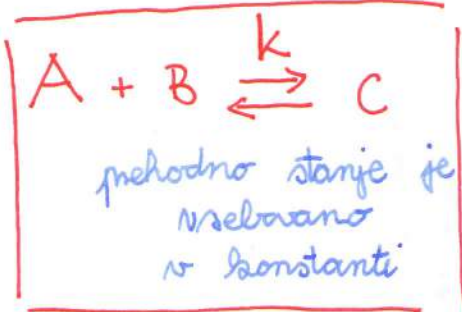 k
A + B ⇌ C
prehodno stanje je
vsebovano
v konstanti